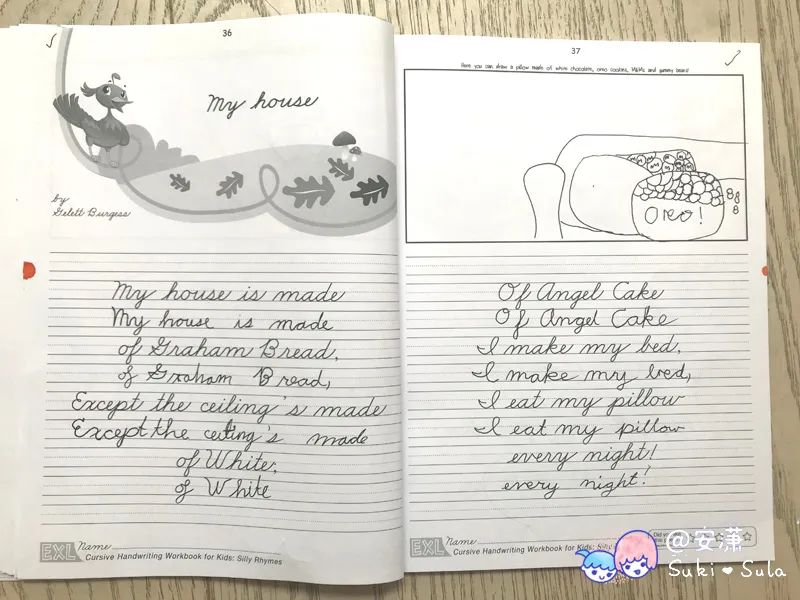 36
My house
by
Gelett Burgess
My house is made
My house is made
of Graham Bread,
of Graham Bread,
Except the ceiling's made
Except the ceiling's made
of White;
of White
EXL Name
Cursive Handwriting Workbook for Kids: Silly Rhymes
37
Here you can draw a pillow made of white chocolate, oreo cookies, M&Ms and gummy bears!
Oreo!
Of Angel Cake
Of Angel Cake
I make my bed,
I make my bed,
I eat my pillow
I eat my pillow
every night!
every night!
EXL Name
Cursive Handwriting Workbook for Kids: Silly
@安潇
Suki ❤ Sula